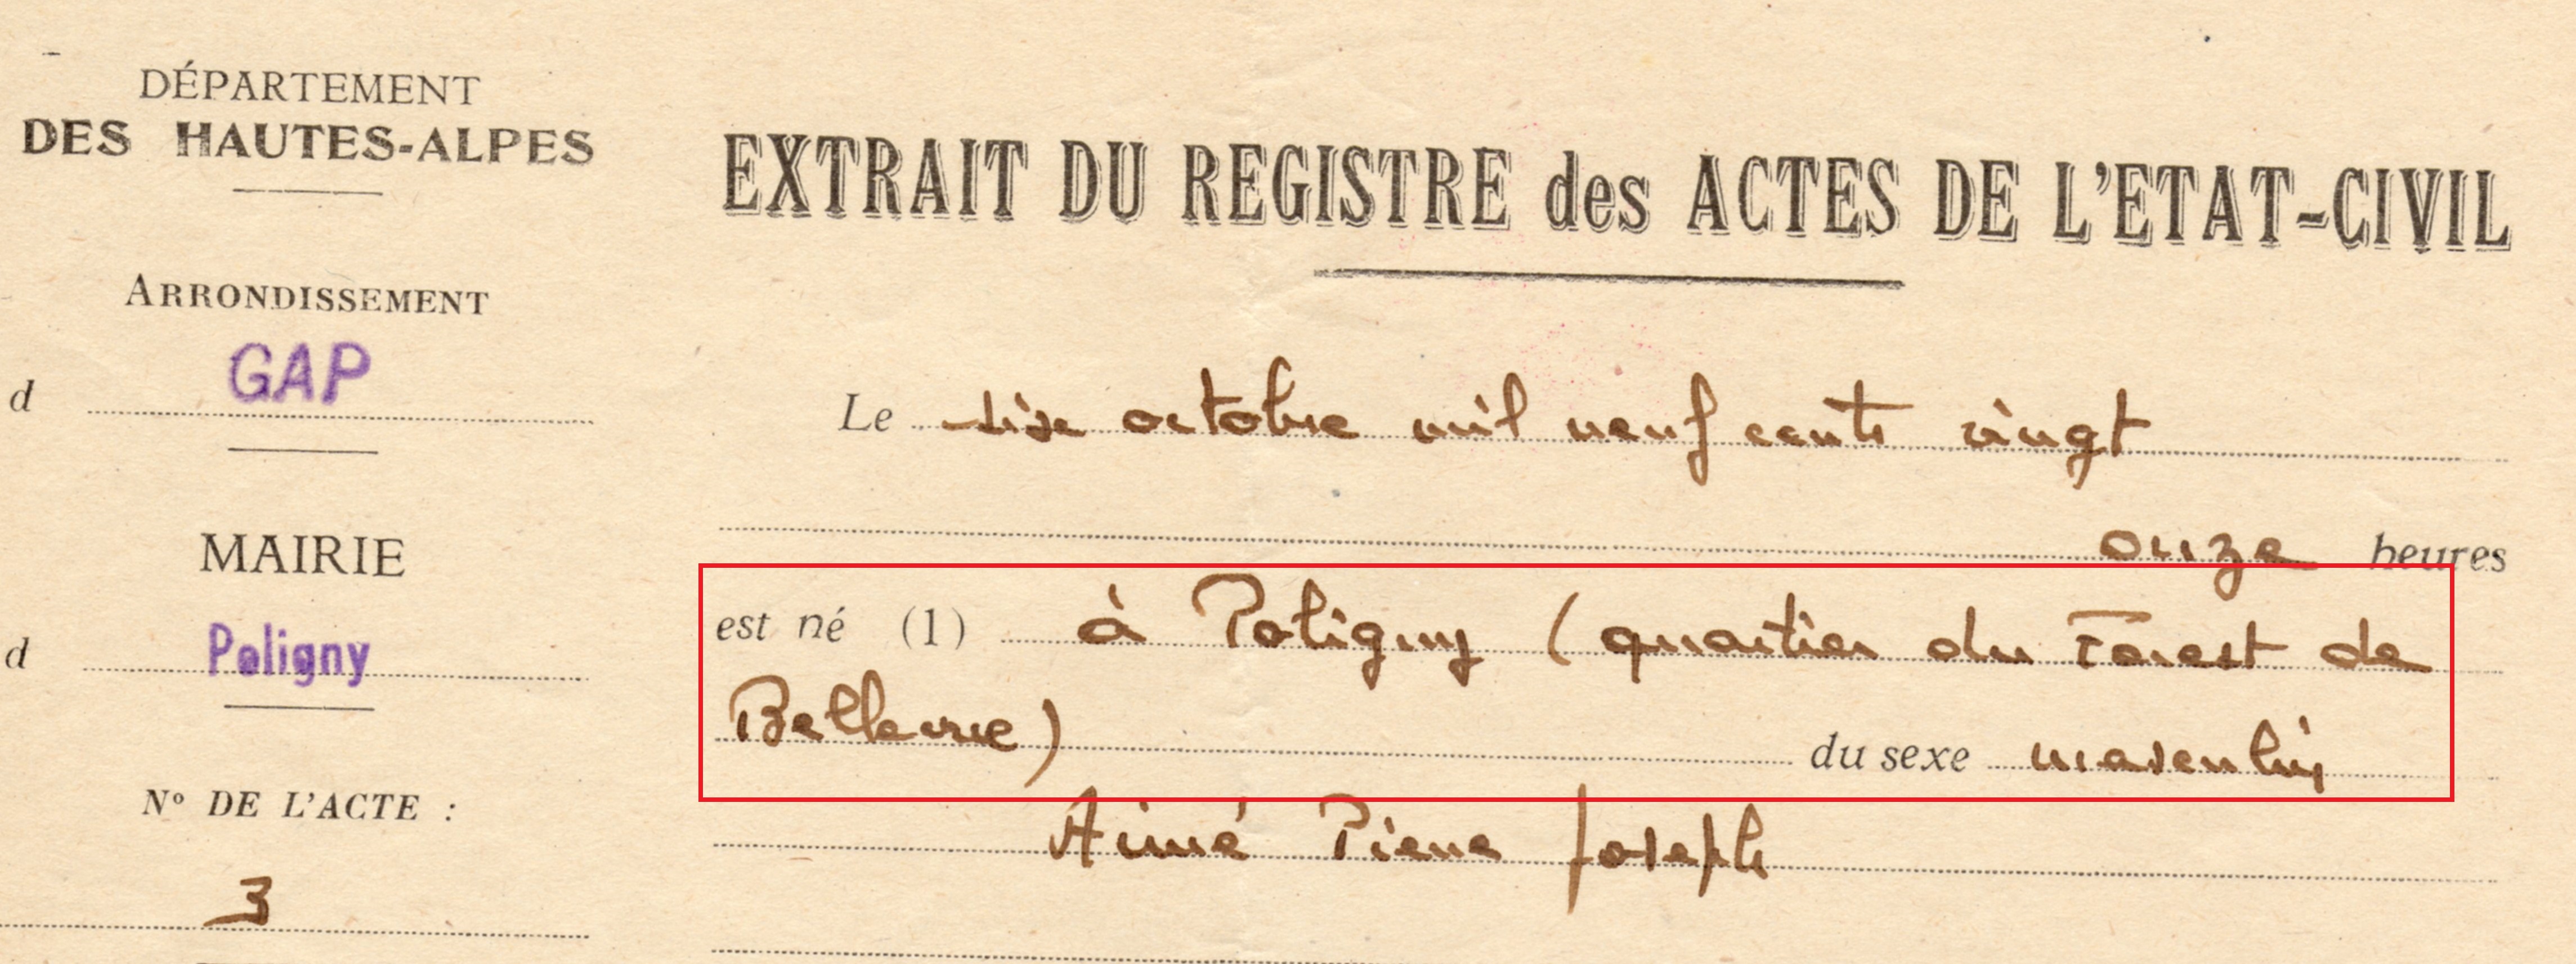 DÉPARTEMENT
DES HAUTES-ALPES
ARRONDISSEMENT
d GAP
MAIRIE
d Poligny
N° DE L'ACTE :
3
EXTRAIT DU REGISTRE des ACTES DE L'ETAT-CIVIL
Le dix octobre mil neuf cent vingt
onze heures
est né (1) à Poligny (quartier du Forest de
Bellevue) du sexe masculin
Aimé Pierre Joseph